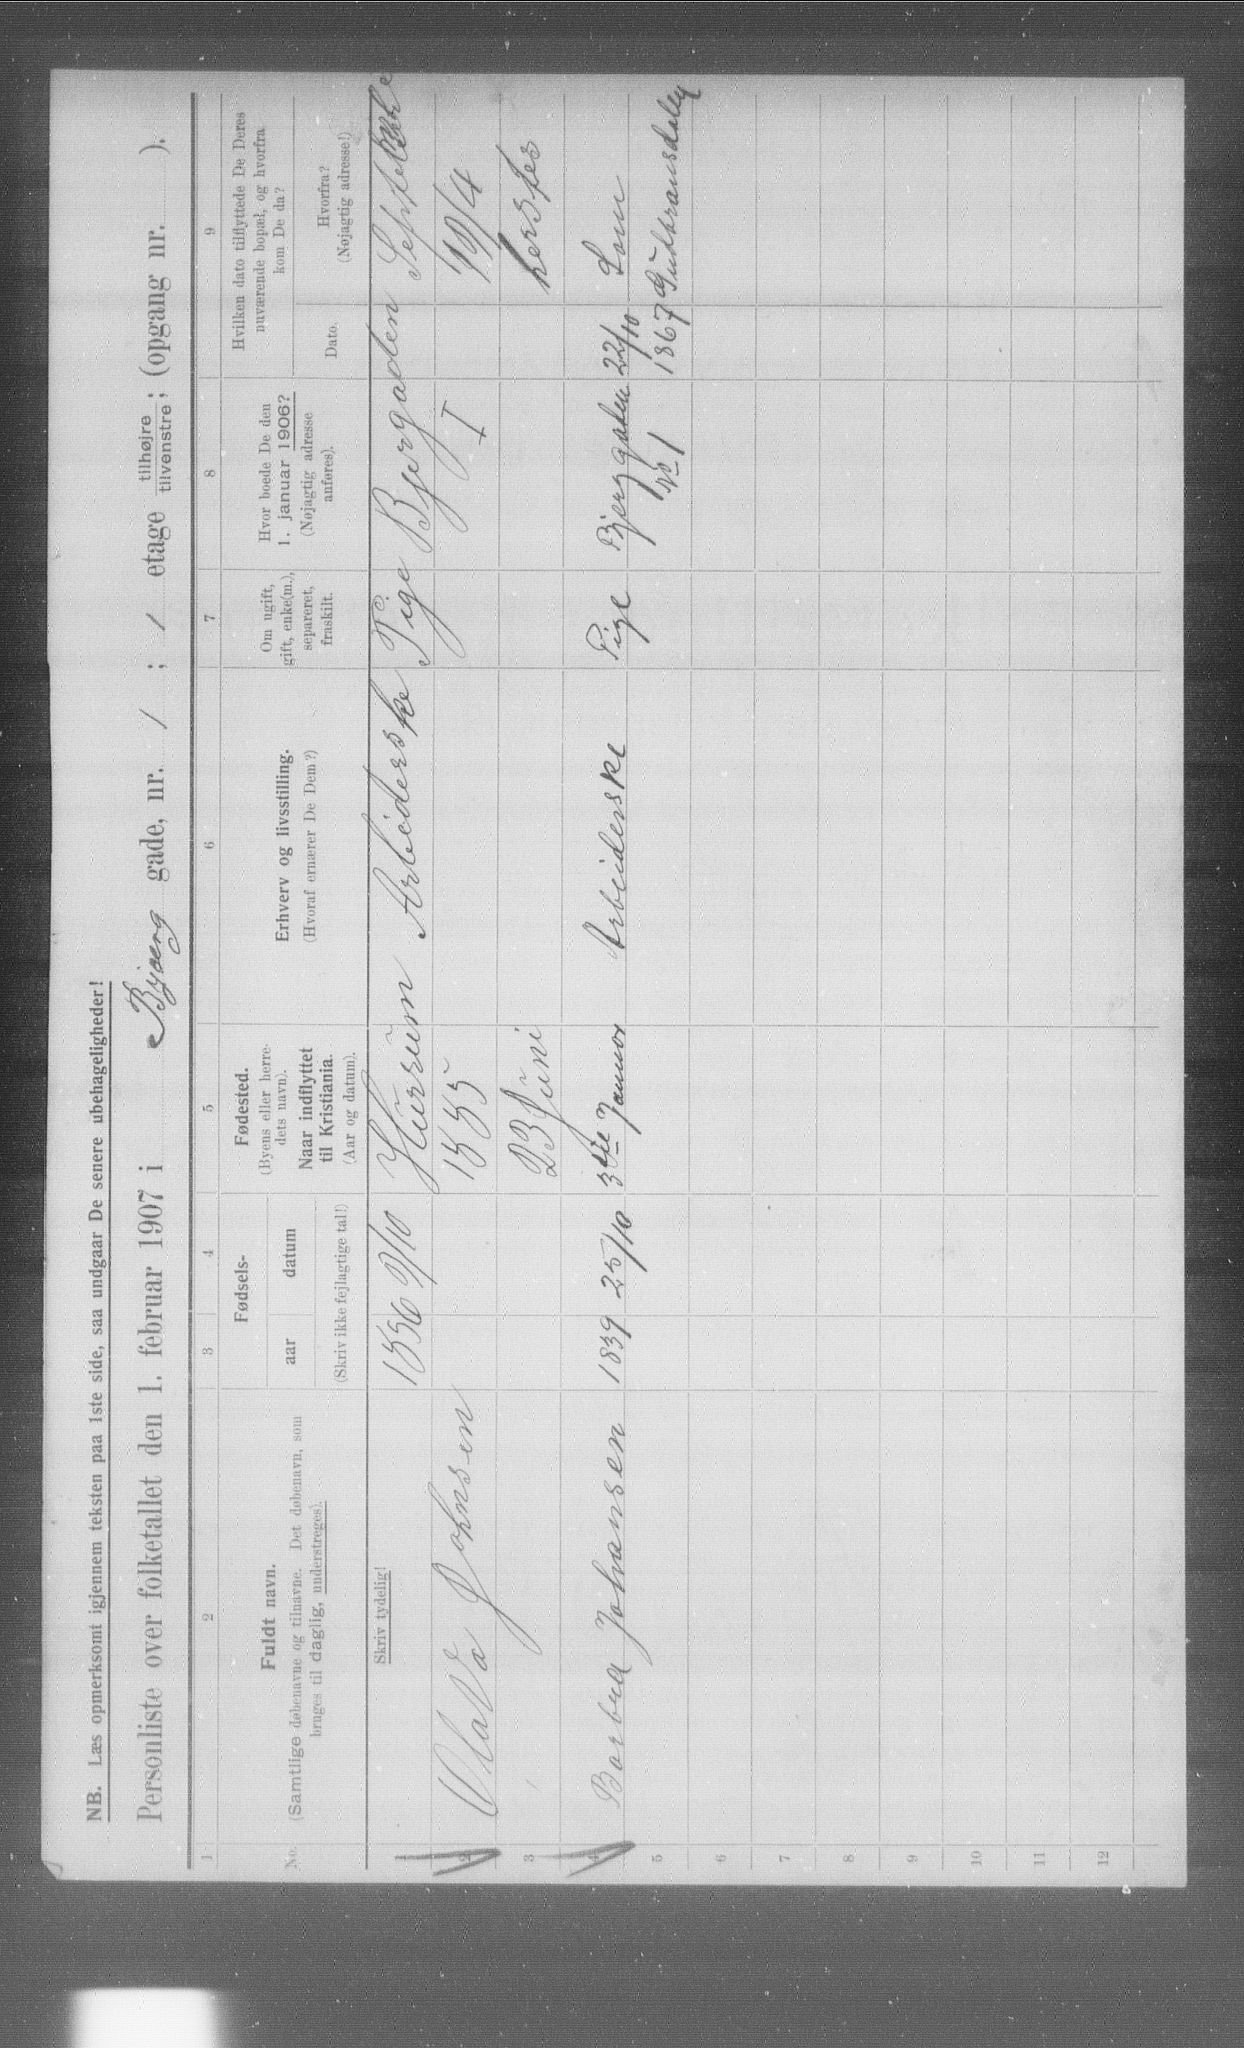 NB. Læs opmerksomt igjennem teksten paa 1ste side, saa undgaar De senere ubehageligheder!
Personliste over folketallet den 1. februar 1907 i Bjaerg gade, nr. 1; 1 etage tilhøjre tilvenstre; (opgang nr. ).
1 2 3 4 5 6 7 8 9
No.
Fuldt navn.
(Samtlige døbenavne og tilnavne. Det døbenavn, som
bruges til daglig, understreges).
Fødsels-
aar datum
(Skriv ikke fejlagtige tal!)
Fødested.
(Byens eller herre-
dets navn).
Naar indflyttet
til Kristiania.
(Aar og datum).
Erhverv og livsstilling.
(Hvoraf ernærer De Dem?)
Om ugift,
gift, enke(m.),
separeret,
fraskilt.
Hvor boede De den
1. januar 1906?
(Nøjagtig adresse
anføres).
Hvilken dato tilflyttede De Deres
nuværende bopæl, og hvorfra
kom De da?
Dato.
Hvorfra?
(Nøjagtig adresse!)
Skriv tydelig!
1 1856 9/10 Hurum Arbeiderske Pige Bjergaden
2 Olava Johnsen 1885 I
3 23 Juni
4 Barbra Johansen 1839 25/10 3die Januar Arbeiderske Pige Bjerggaden 22/10 Lom
5 No 1 1867 Gulbransdalen
6
7
8
9
10
11
12